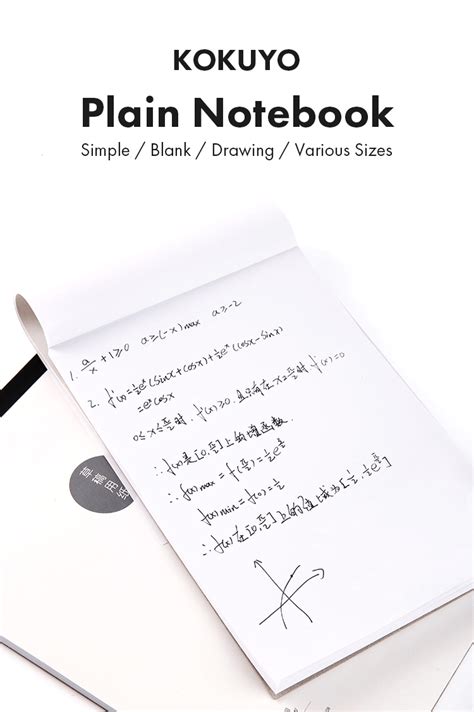 KOKUYO
Plain Notebook
Simple / Blank / Drawing / Various Sizes
1. a/x + 1 ≥ 0 a ≥ (-x)max a ≥ -2
2. f'(x) = ½eˣ(sinx + cosx) + ½eˣ(cosx - sinx)
= eˣcosx
0 ≤ x ≤ π/2 时, f'(x) ≥ 0, 且只有在 x = π/2 时, f'(x) = 0
∴ f(x) 是 [0, π/2] 上的增函数.
∴ f(x)max = f(π/2) = ½e^(π/2)
f(x)min = f(0) = ½
∴ f(x) 在 [0, π/2] 上的值域为 [½, ½e^(π/2)]
草稿用纸